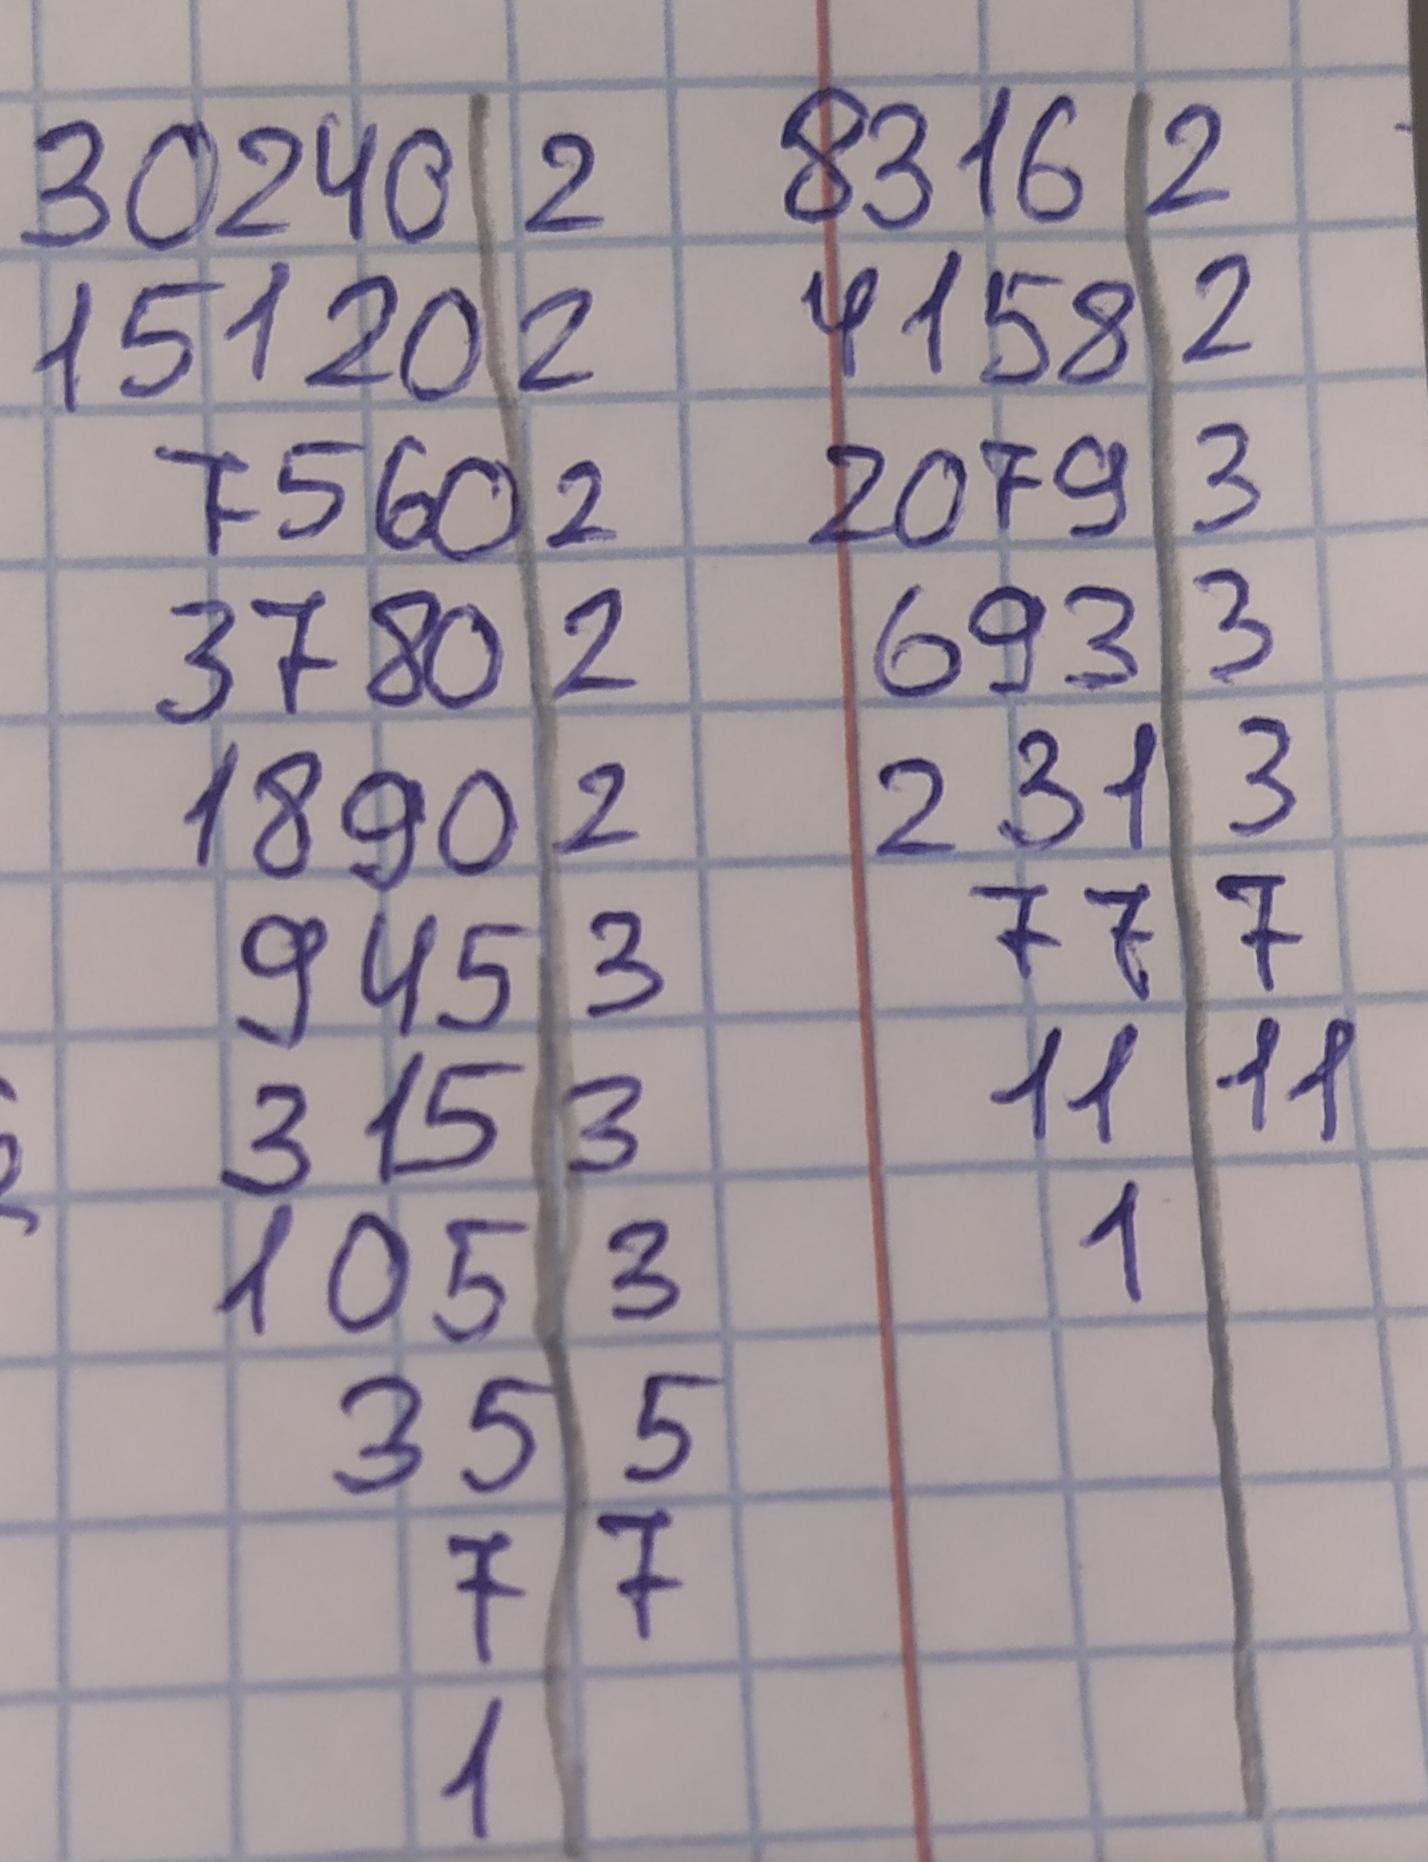 30240 2
15120 2
7560 2
3780 2
1890 2
945 3
315 3
105 3
35 5
7 7
1
8316 2
4158 2
2079 3
693 3
231 3
77 7
11 11
1